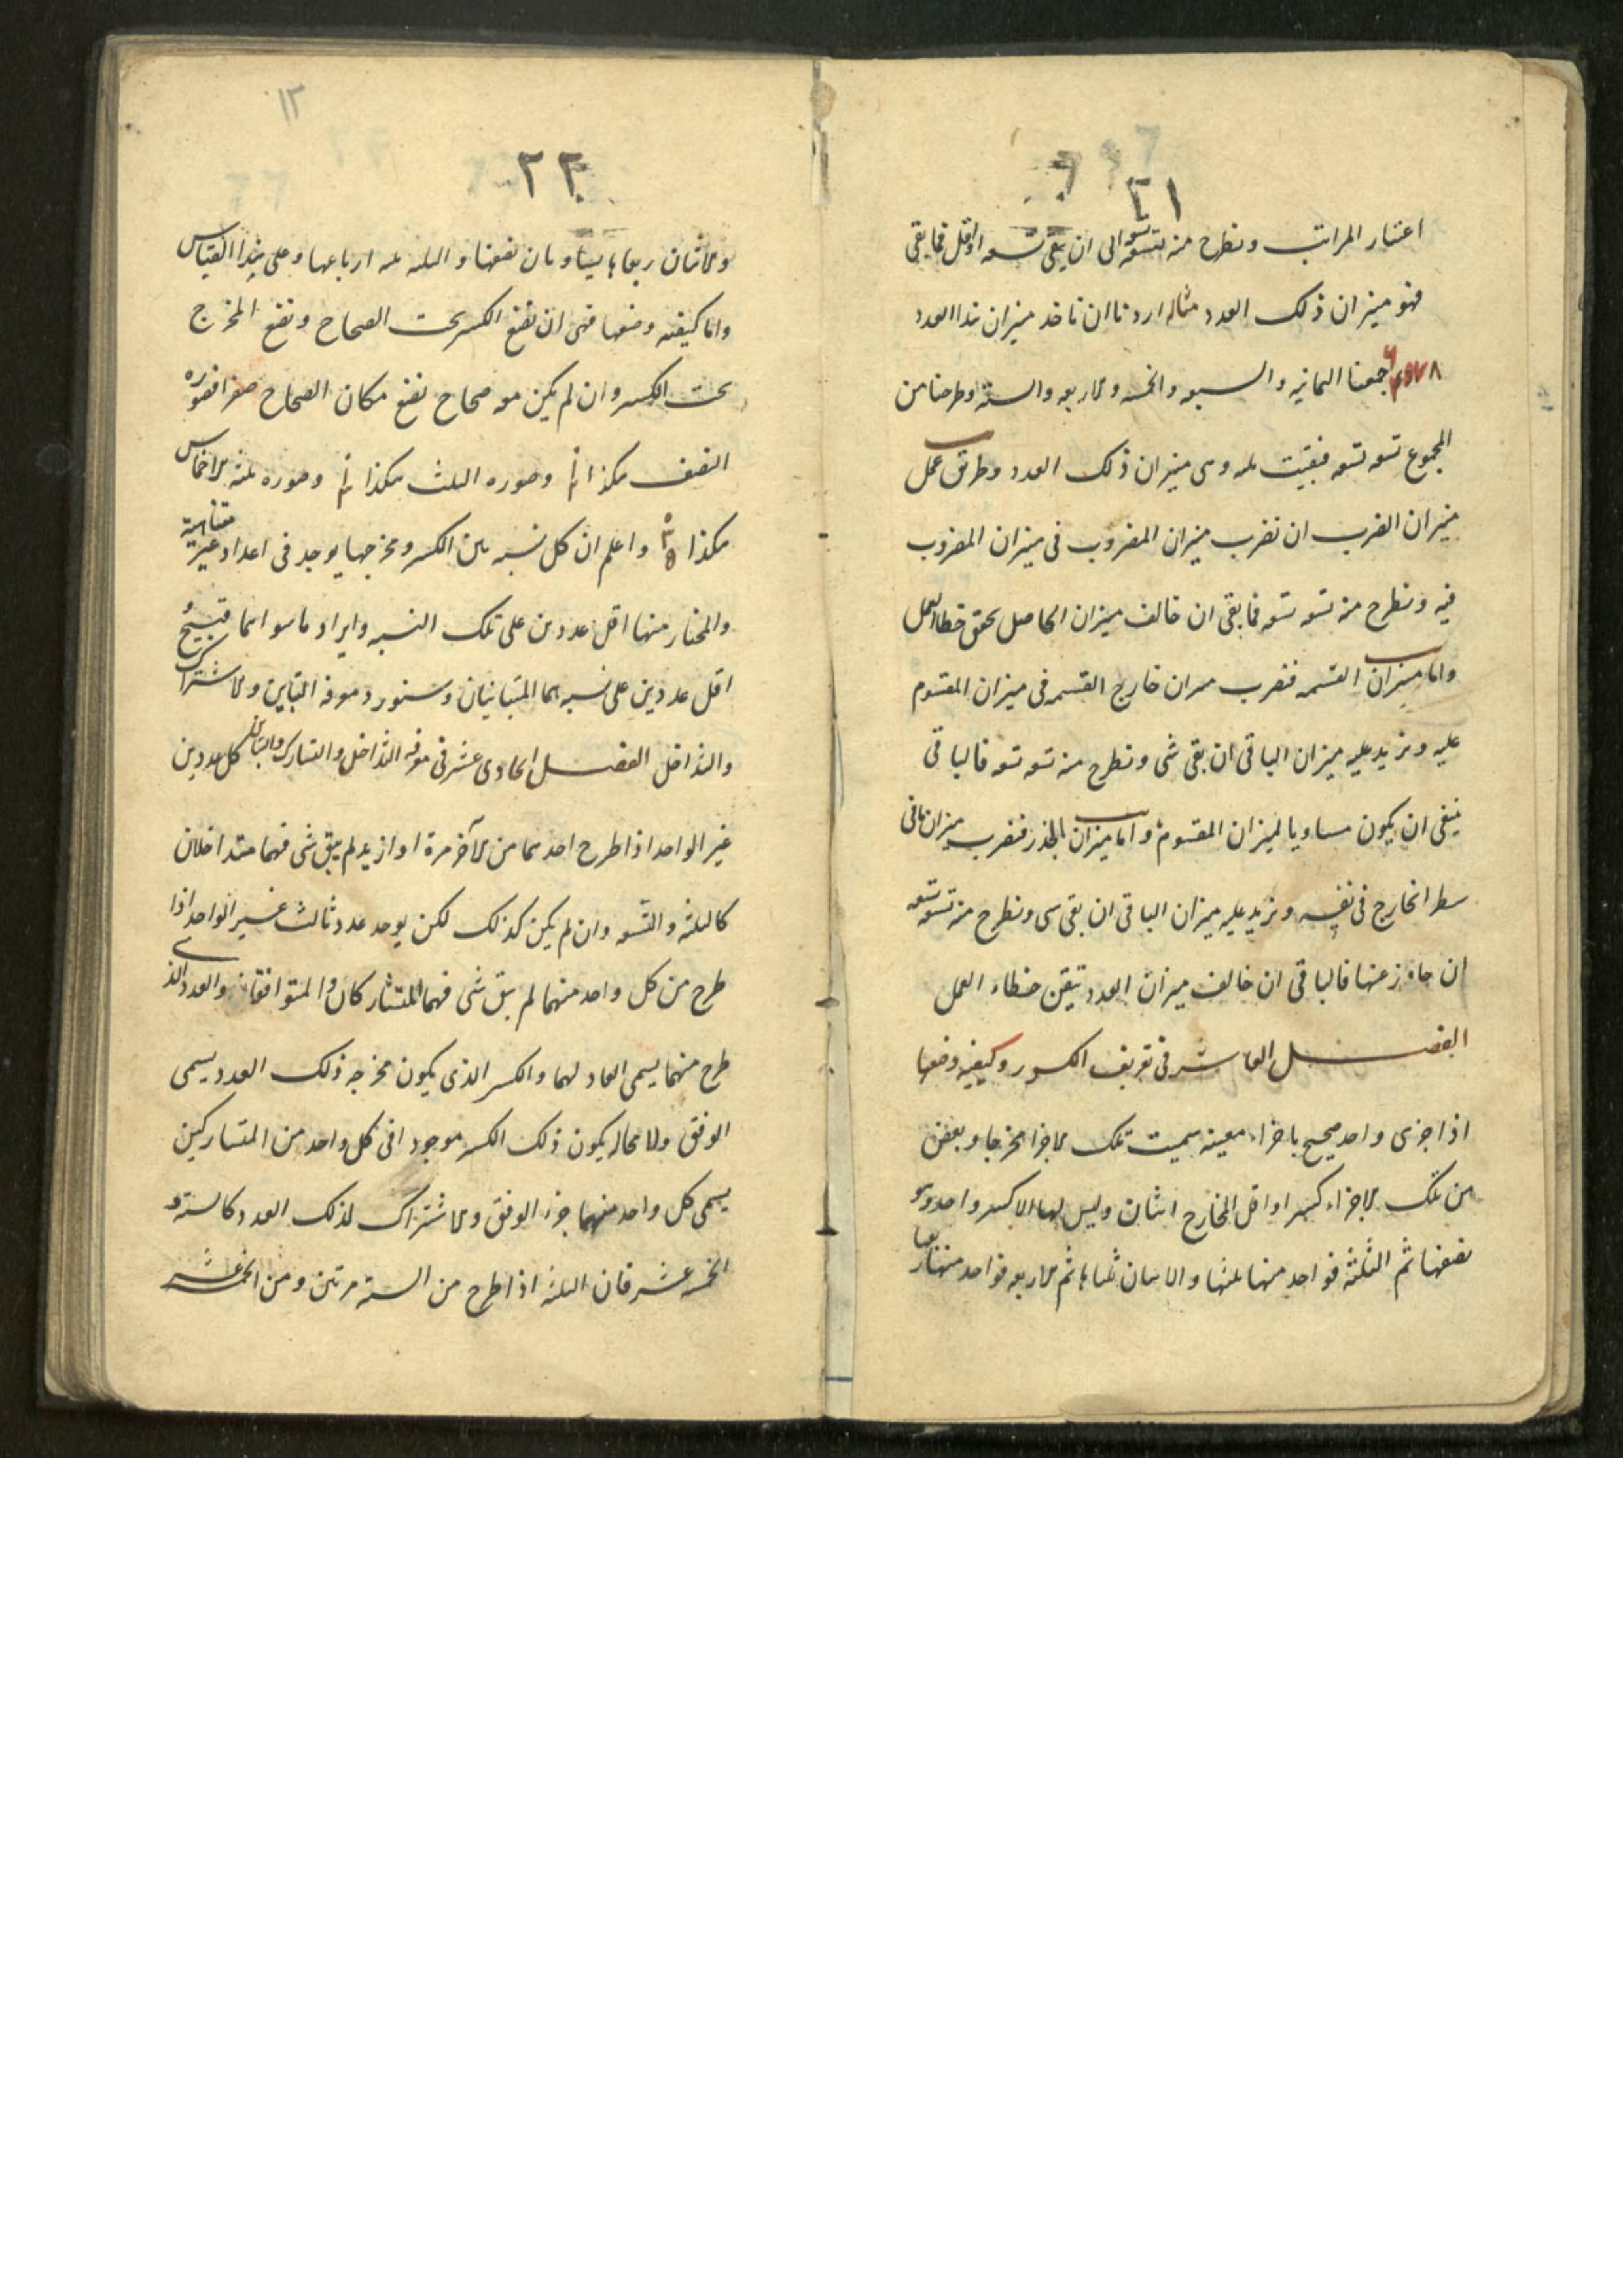 ٢١
اعتبار المراتب ونطرح منه تسعة تسعة الى ان يبقى تسعة او اقل فما بقى
فهو ميزان ذلك العدد مثاله اردنا ان ناخذ ميزان هذا العدد
جمعنا الثمانيه والسبعه والخمسه والاربعه والستة وطرحنا من
المجموع تسعه تسعه فبقيت ثلثه وهى ميزان ذلك العدد وطريق عمل
ميزان الضرب ان نضرب ميزان المضروب فى ميزان المضروب
فيه ونطرح منه تسعه تسعه فما بقى ان خالف ميزان الحاصل تحقق خطاء العمل
واما ميزان القسمه فنضرب ميزان خارج القسمه فى ميزان المقسوم
عليه ونزيد عليه ميزان الباقى ان بقى شى ونطرح منه تسعه تسعه فالباقى
ينبغى ان يكون مساويا لميزان المقسوم واما ميزان الجذر فنضرب ميزان ما فى
سطر الخارج فى نفسه ونزيد عليه ميزان الباقى ان بقى شى ونطرح منه تسعه تسعه
ان جاوز عنها فالباقى ان خالف ميزان العدد تيقن خطاء العمل
الفصل العاشر فى تعريف الكسور وكيفيه وضعها
اذا جزى واحد صحيح باجزاء معينه سميت تلك الاجزا مخرجا وبعض
من تلك الاجزاء كسرا واقل المخارج اثنان وليس لها الا كسر واحد وهو
نصفها ثم الثلثة فواحد منها ثلثها والاثنان ثلثاها ثم الاربعه فواحد منها ربعها
١٢
٢٢
والاثنان ربعاها يساويان نصفها والثلثه ثلثه ارباعها وعلى هذا القياس
واما كيفيه وضعها فهى ان نضع الكسر تحت الصحاح ونضع المخرج
تحت الكسر وان لم يكن معه صحاح نضع مكان الصحاح صفرا فصوره
النصف هكذا وصوره الثلث هكذا وصوره ثلثه الاخماس
هكذا واعلم ان كل نسبه بين الكسر ومخرجها يوجد فى اعداد غير متناهية
والمختار منها اقل عددين على تلك النسبه وايراد ما سواهما قبيح و
اقل عددين على نسبه هما المتباينان وسنورد معرفه التباين والاشتراك
والتداخل الفصل الحادى عشر فى معرفه التداخل والتشارك والتباين كل عددين
غير الواحد اذا طرح احدهما من الآخر مرة او ازيد لم يبق شى فهما متداخلان
كالثلثه والتسعه وان لم يكن كذلك لكن يوجد عدد ثالث غير الواحد اذا
طرح من كل واحد منهما لم يبق شى فهما المتشاركان والمتوافقان والعدد الذى
طرح منهما يسمى العاد لهما والكسر الذى يكون مخرجه ذلك العدد يسمى
الوفق ولا محاله يكون ذلك الكسر موجودا فى كل واحد من المتشاركين
يسمى كل واحد منهما جزء الوفق والاشتراك لذلك العدد كالستة و
الخمسه عشر فان الثلثه اذا طرح من الستة مرتين ومن الخمسه عشر